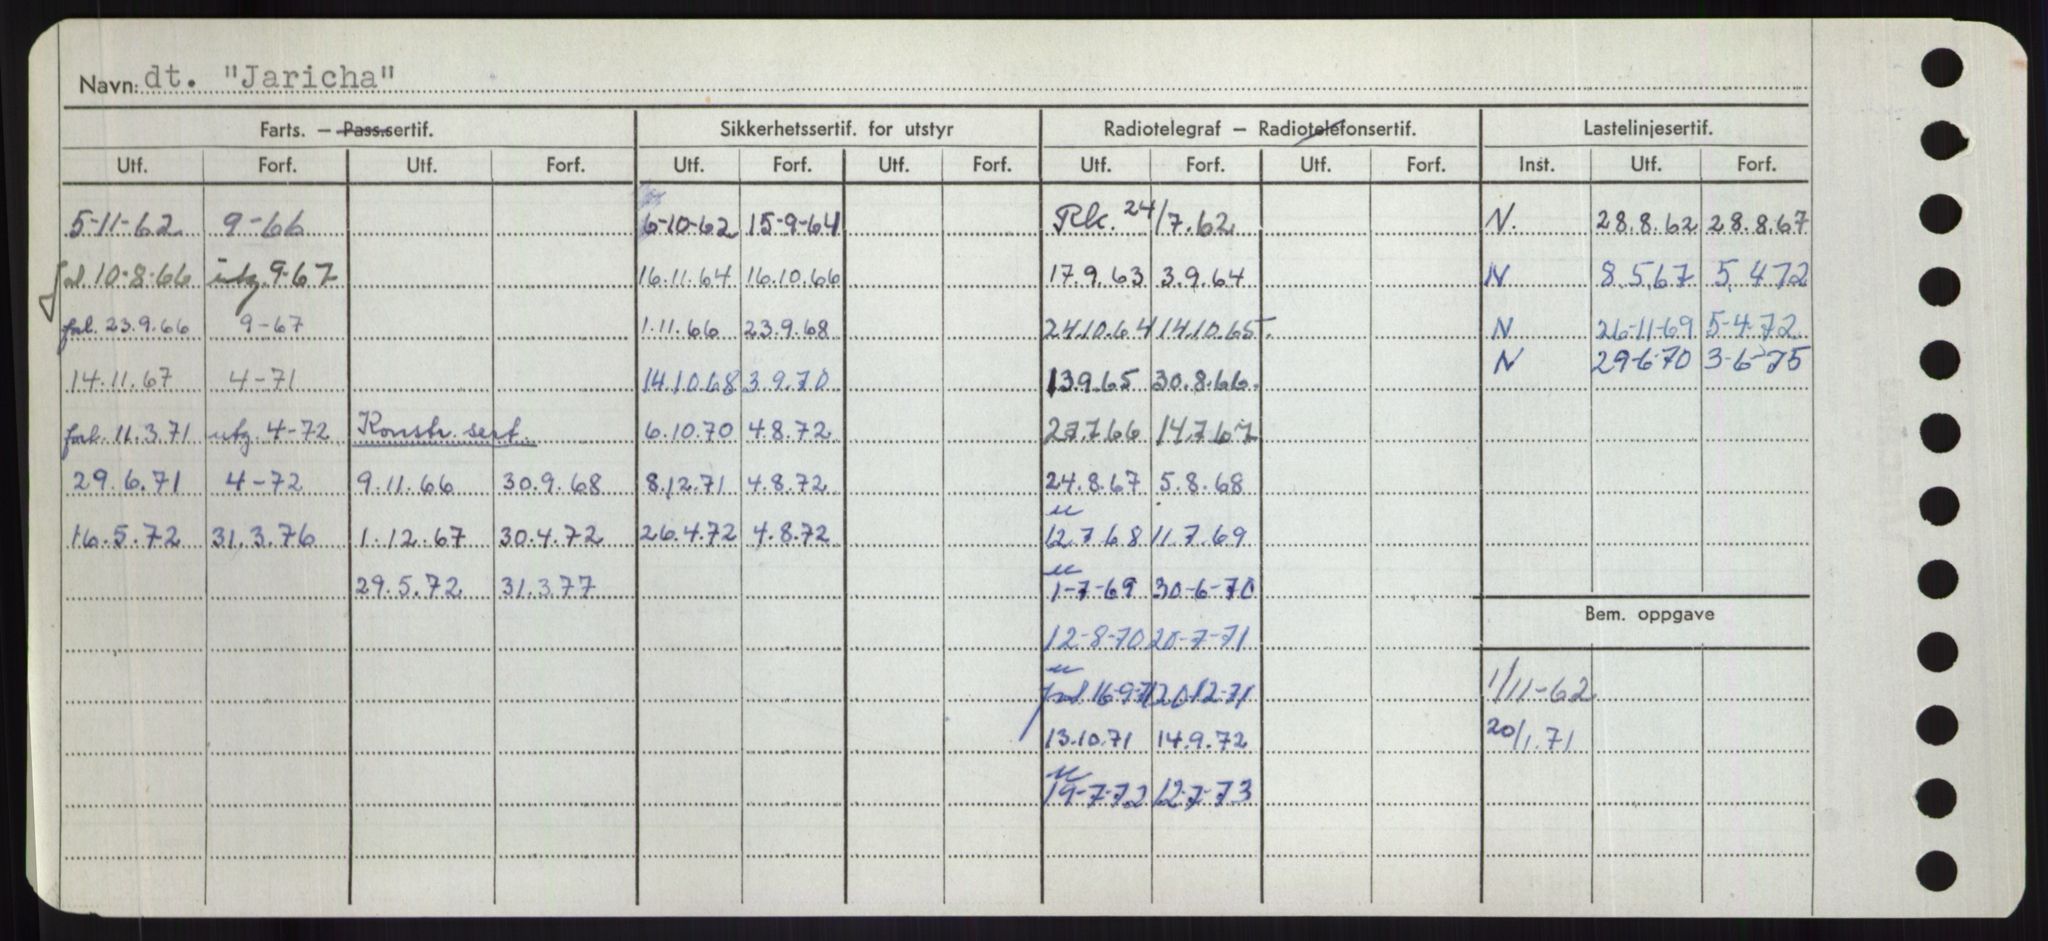 Navn: dt. "Jaricha"
Farts. — Pass.sertif. Sikkerhetssertif. for utstyr Radiotelegraf — Radiotelefonsertif. Lastelinjesertif.
Utf. Forf. Utf. Forf. Utf. Forf. Utf. Forf. Utf. Forf. Utf. Forf. Inst. Utf. Forf.
5-11-62 9-66 6-10-62 15-9-64 Rk. 24/7.62 N. 28.8.62 28.8.67
forl. 10-8-66 utg. 9-67 16.11.64 16.10.66 17.9.63 3.9.64 N 8.5.67 5.4.72
forl. 23.9.66 9-67 1.11.66 23.9.68 24.10.64 14.10.65. N 26-11-69 5-4-72
14.11.67 4-71 14.10.68 3.9.70 13.9.65 30.8.66. N 29-6-70 3-6-75
forl. 11.3.71 utg. 4-72 Konstr. sert. 6.10.70 4.8.72 27.7.66 14.7.67
29.6.71 4-72 9.11.66 30.9.68 8.12.71 4.8.72 24.8.67 5.8.68
16.5.72 31.3.76 1.12.67 30.4.72 26.4.72 4.8.72 12.7.68 11.7.69
29.5.72 31.3.77 1-7-69 30-6-70
Bem. oppgave
12-8-70 20-7-71
forl. 16-9-71 20-12-71 1/11-62
13.10.71 14.9.72 20/1.71
19-7-72 12-7-73